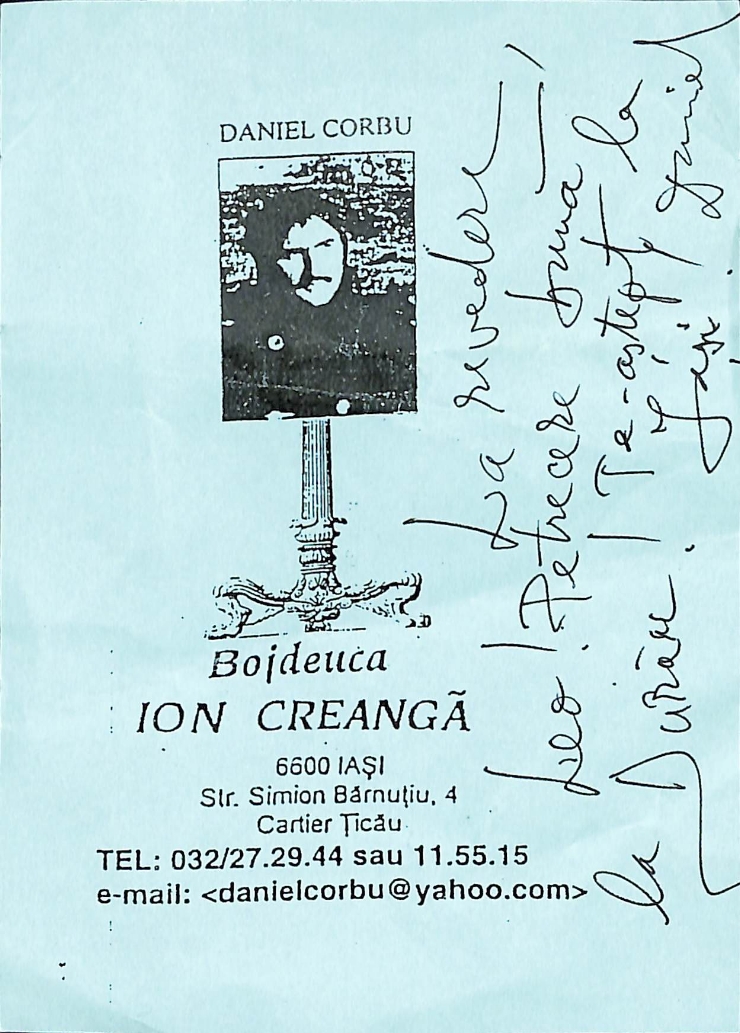 DANIEL CORBU
Bojdeuca
ION CREANGĂ
6600 IAŞI
Str. Simion Bărnuţiu, 4
Cartier Ţicău
TEL: 032/27.29.44 sau 11.55.15
e-mail: <danielcorbu@yahoo.com>
La revedere
Leo! Petrecere bună
la Durău. Te-aştept la
Iaşi. Daniel